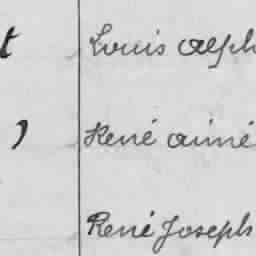 t Louis Alph
) René Aimé
René Joseph